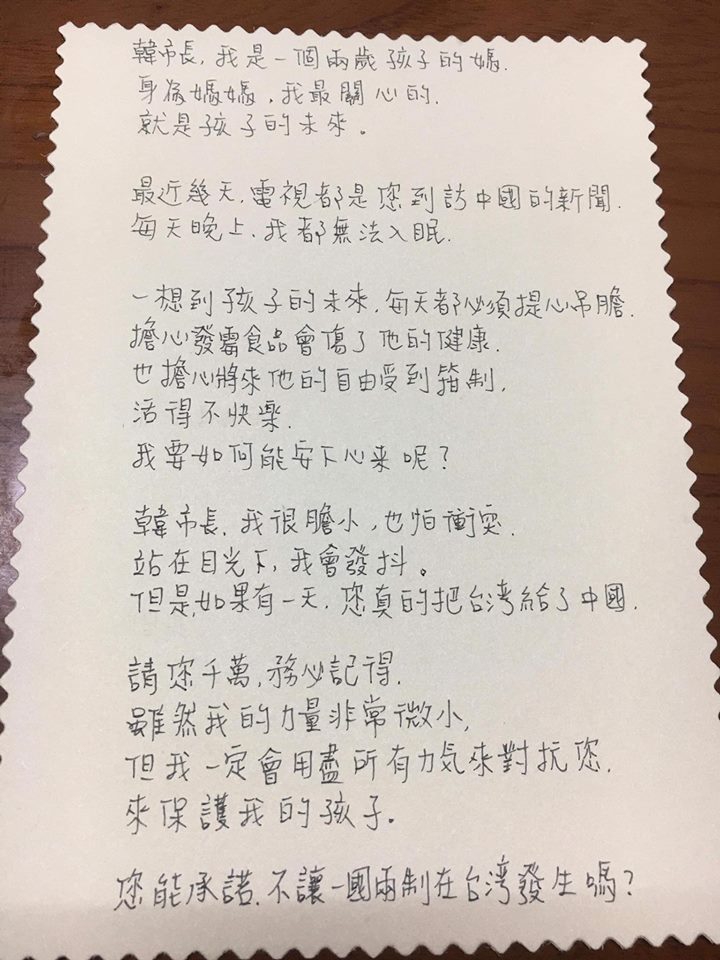 韓市長,我是一個兩歲孩子的媽.
身為媽媽,我最關心的.
就是孩子的未來。
最近幾天,電視都是您到訪中國的新聞.
每天晚上,我都無法入眠.
一想到孩子的未來,每天都必須提心吊膽.
擔心發霉食品會傷了他的健康.
也擔心將來他的自由受到箝制,
活得不快樂.
我要如何能安下心来呢?
韓市長.我很膽小,也怕衝突.
站在目光下,我會發抖。
但是,如果有一天,您真的把台湾給了中國.
請您千萬,務必記得.
雖然我的力量非常微小,
但我一定會用盡所有力氣來對抗您.
來保護我的孩子。
您能承諾.不讓一國兩制在台湾發生嗎?